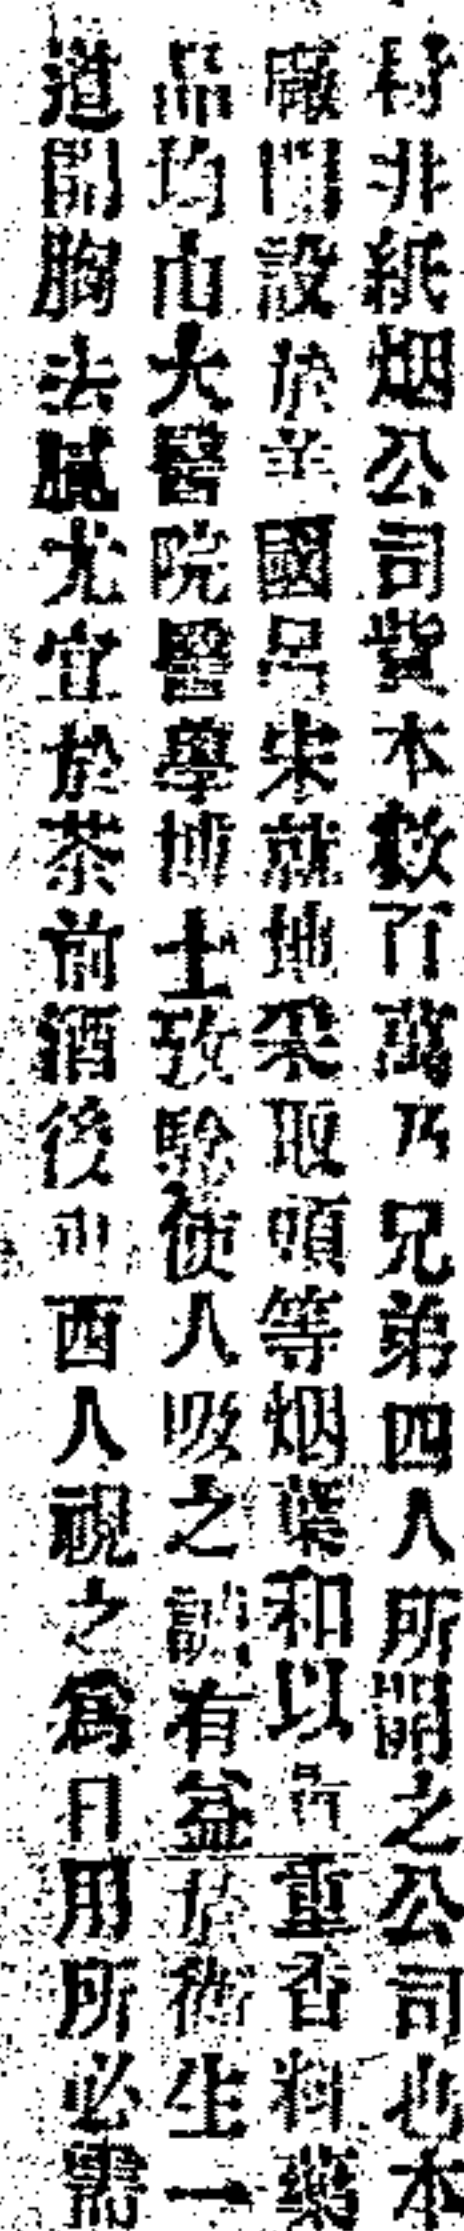 村井紙烟公司資本數百萬乃兄弟四人所開之公司也本
廠開設於美國呂宋就地采取頭等烟葉和以貴重香料藥
品均由大醫院醫學博士考驗使人吸之誠有益於衛生一
道開胸法膩尤宜於茶前酒後而西人視之為日用所必需